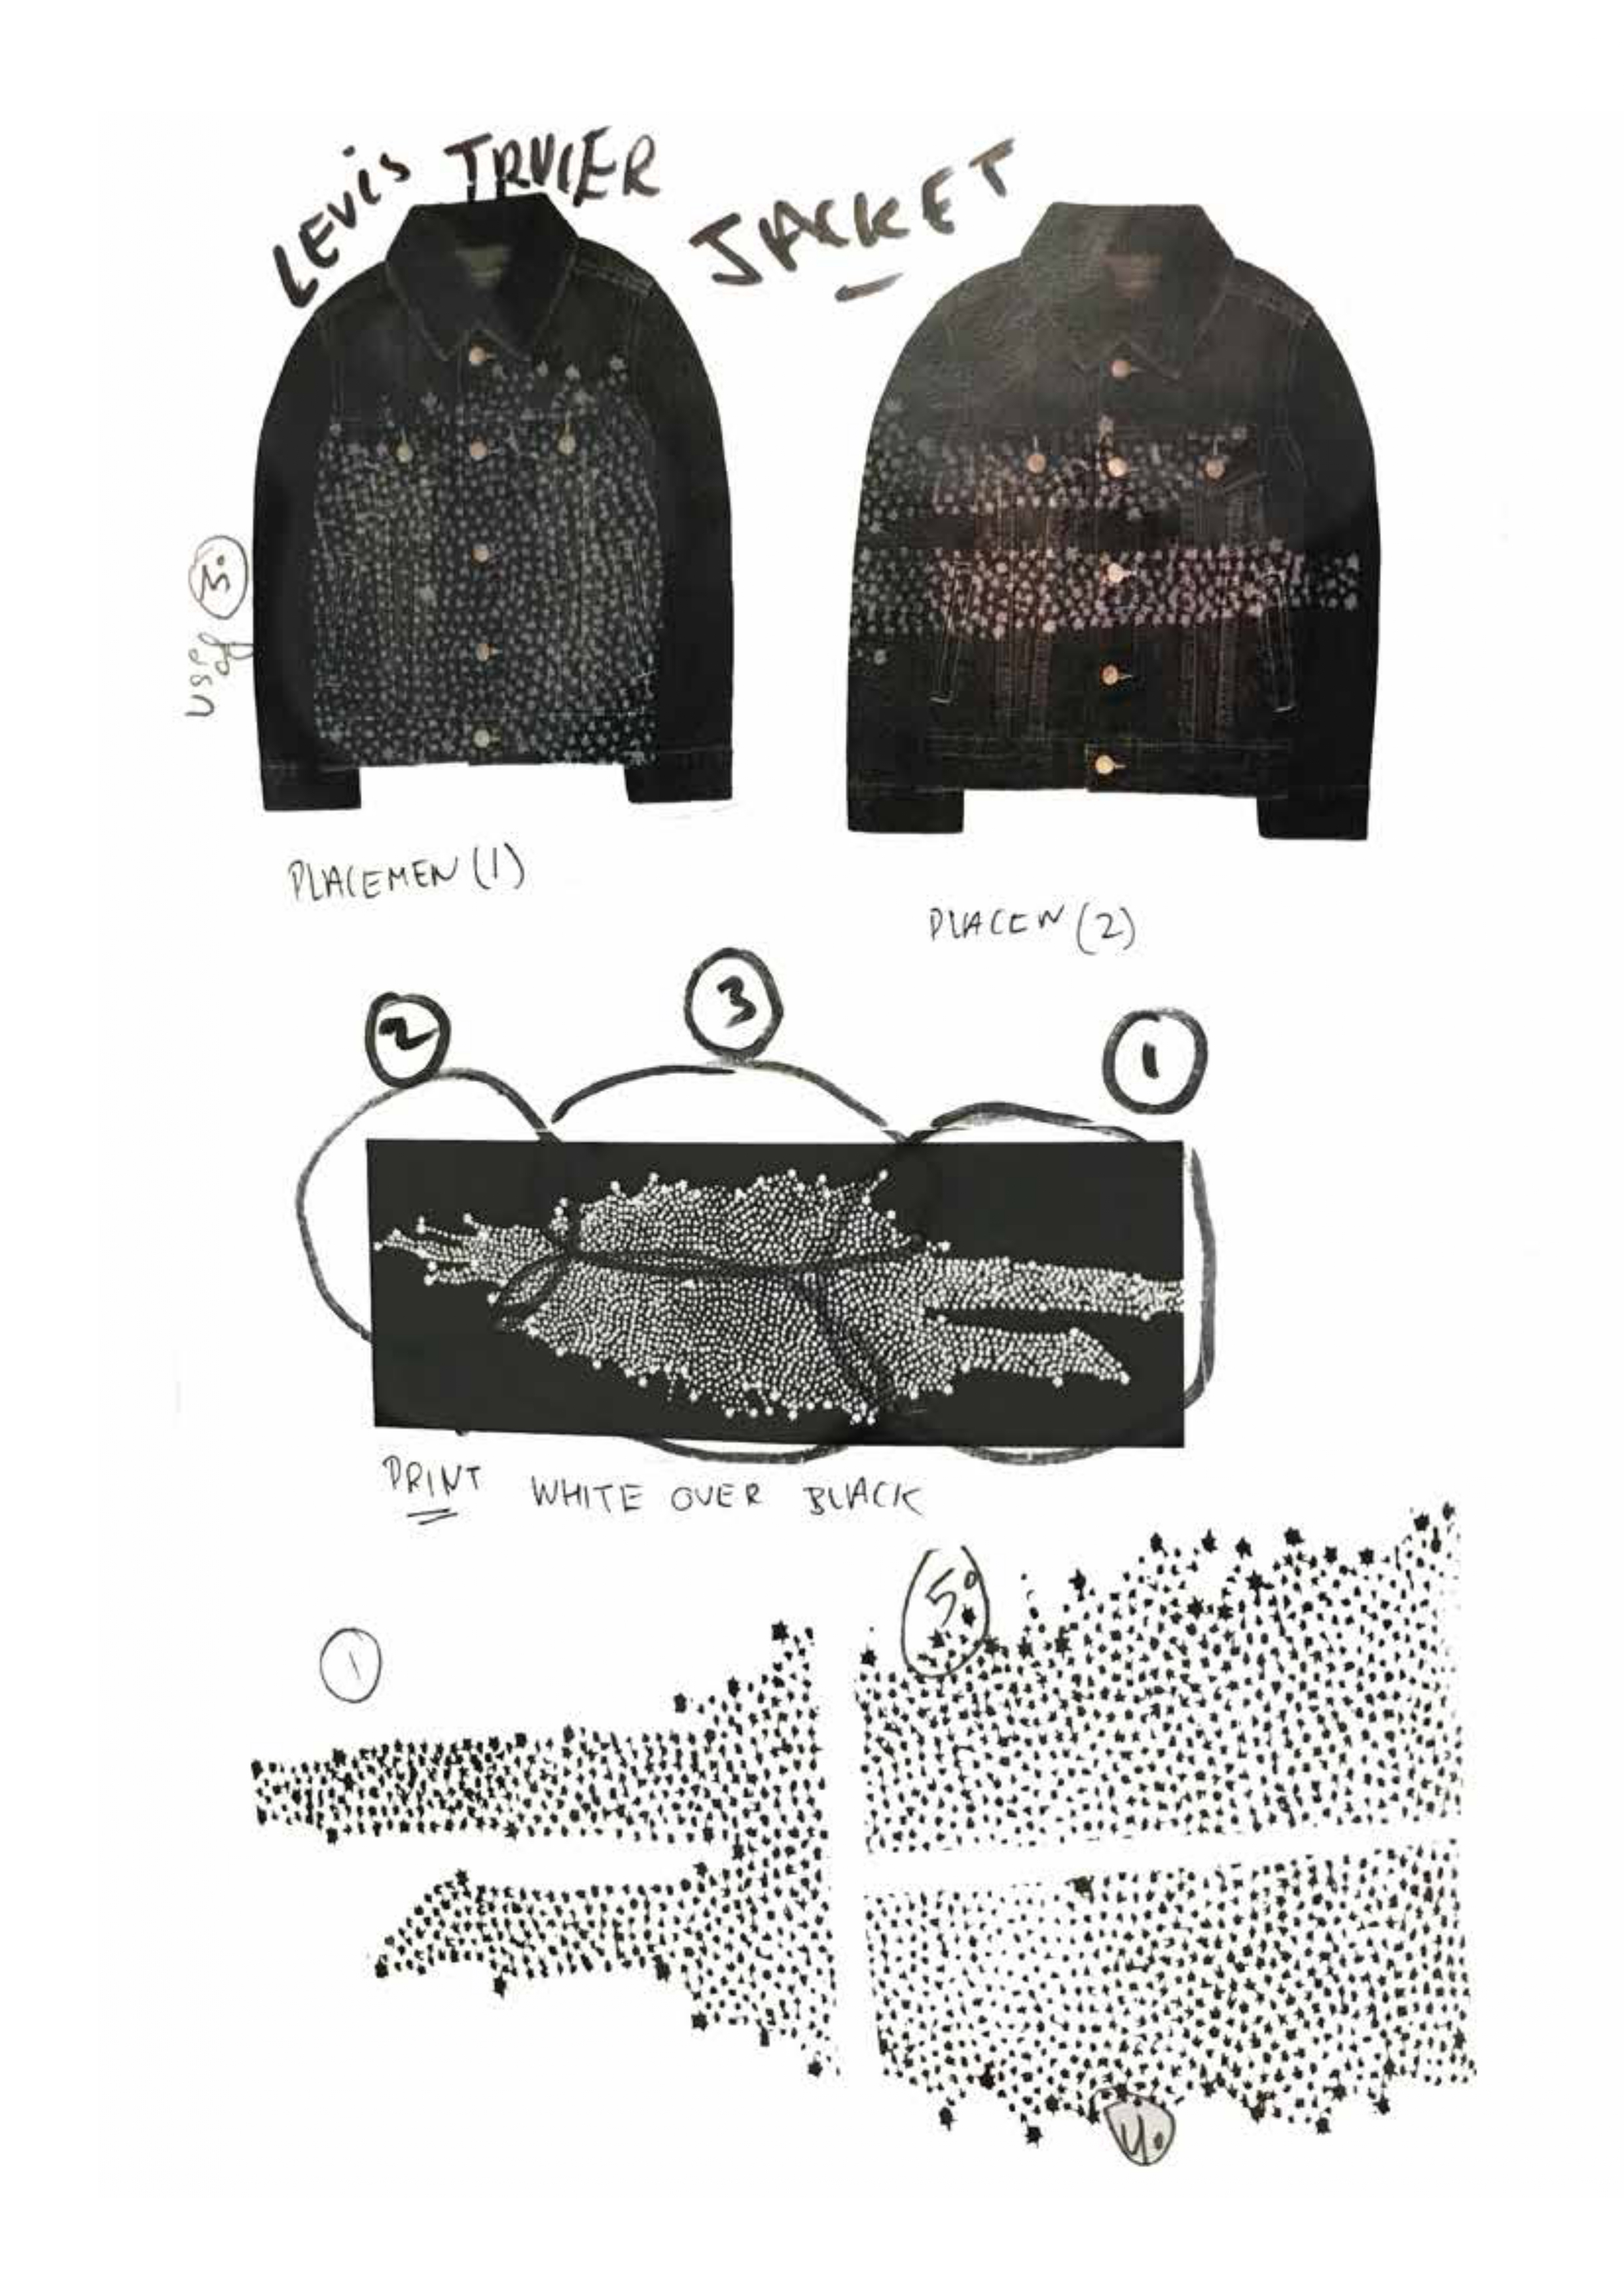 LEVIS TRUIER
JACKET
USE OF 3.
PLACEMEN (1)
PLACEN (2)
2
3
1
PRINT WHITE OVER BLACK
1
5º
4.